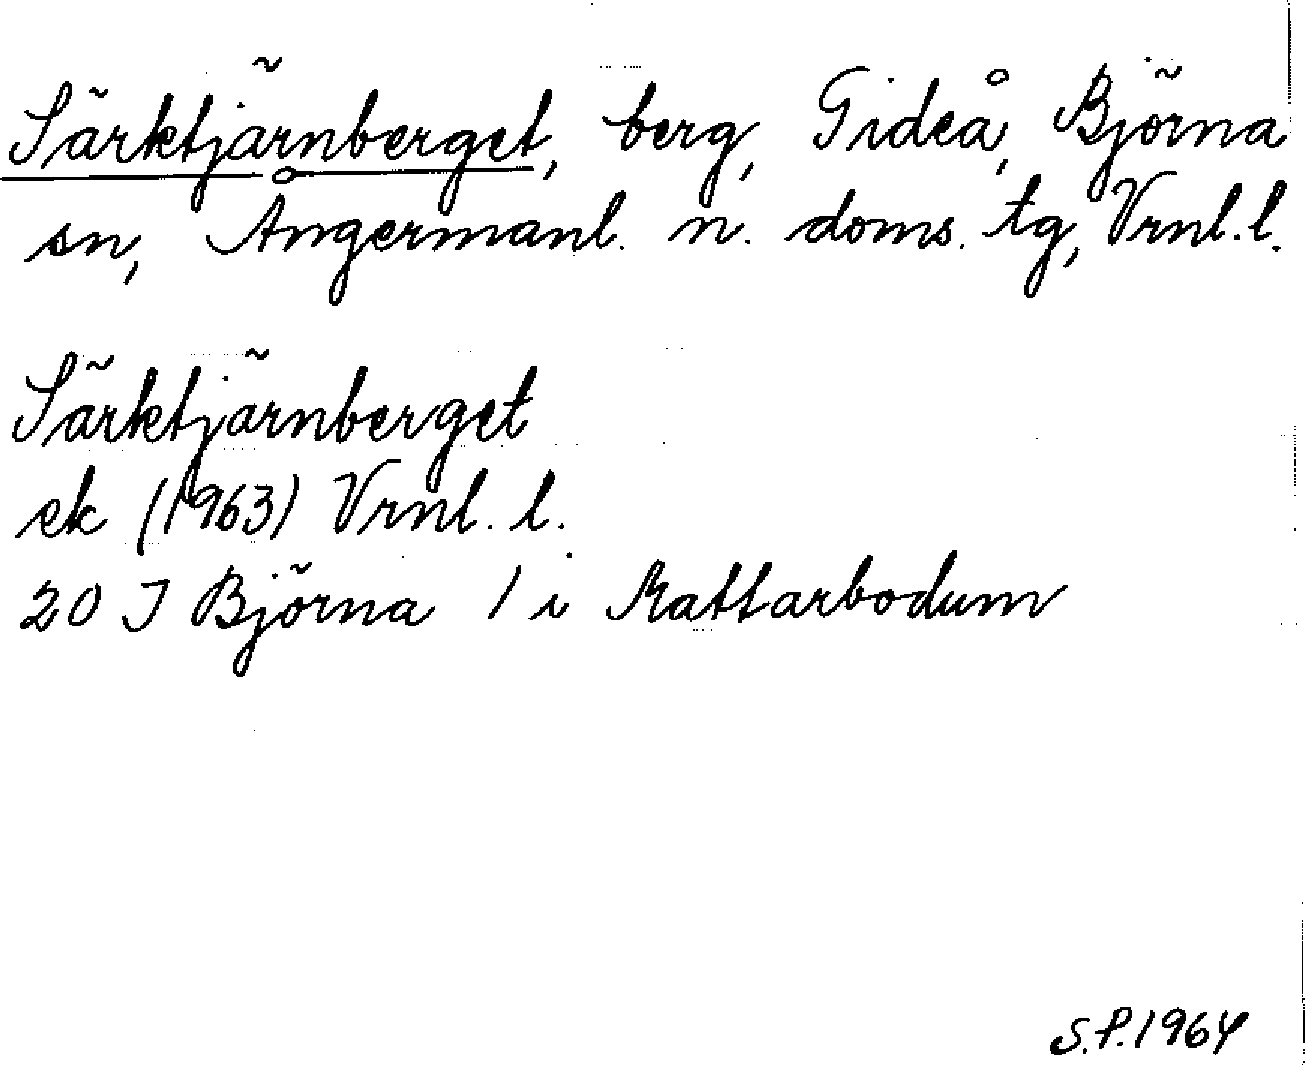 Särktjärnberget, berg, Gideå, Björna
sn, Ångermanl. n. doms. tg, Vrnl. l.
Särktjärnberget
ek (1963) Vrnl. l.
20 J Björna 1 i Kattarbodum
S.P. 1964